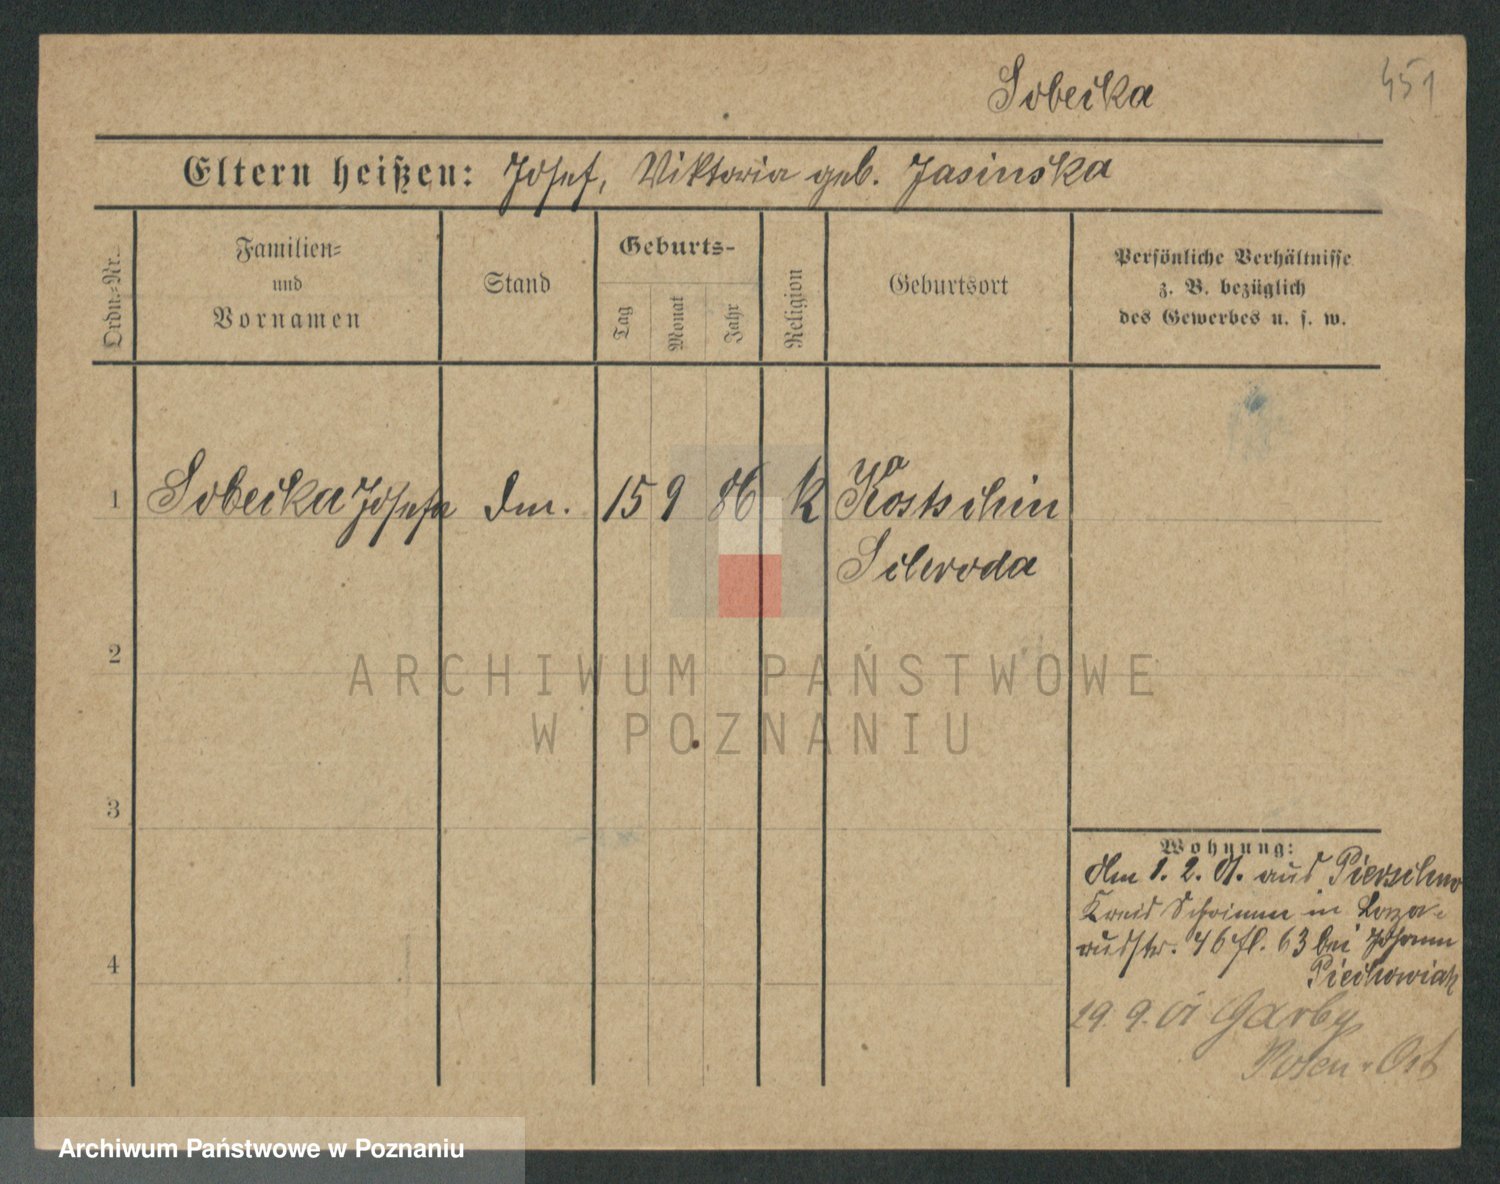 Sobecka
451
Eltern heißen: Josef, Viktoria geb. Jasinska
Ordn.=Nr.
Familien=
und
Vornamen
Stand
Geburts-
Tag
Monat
Jahr
Religion
Geburtsort
Persönliche Verhältnisse
z. B. bezüglich
des Gewerbes u. s. w.
1 Sobecka Josefa 15 9 86 k Kostschin
Schroda
2
ARCHIWUM PAŃSTWOWE
W POZNANIU
3
Wohnung:
Am 1. 2. 01. aus Pierschno
Kreis Schrimm in Laza-
russtr. 46 fl. 63 bei Johann
Piechowiak
29. 9. 01 Garby
Posen-Ost
4
Archiwum Państwowe w Poznaniu